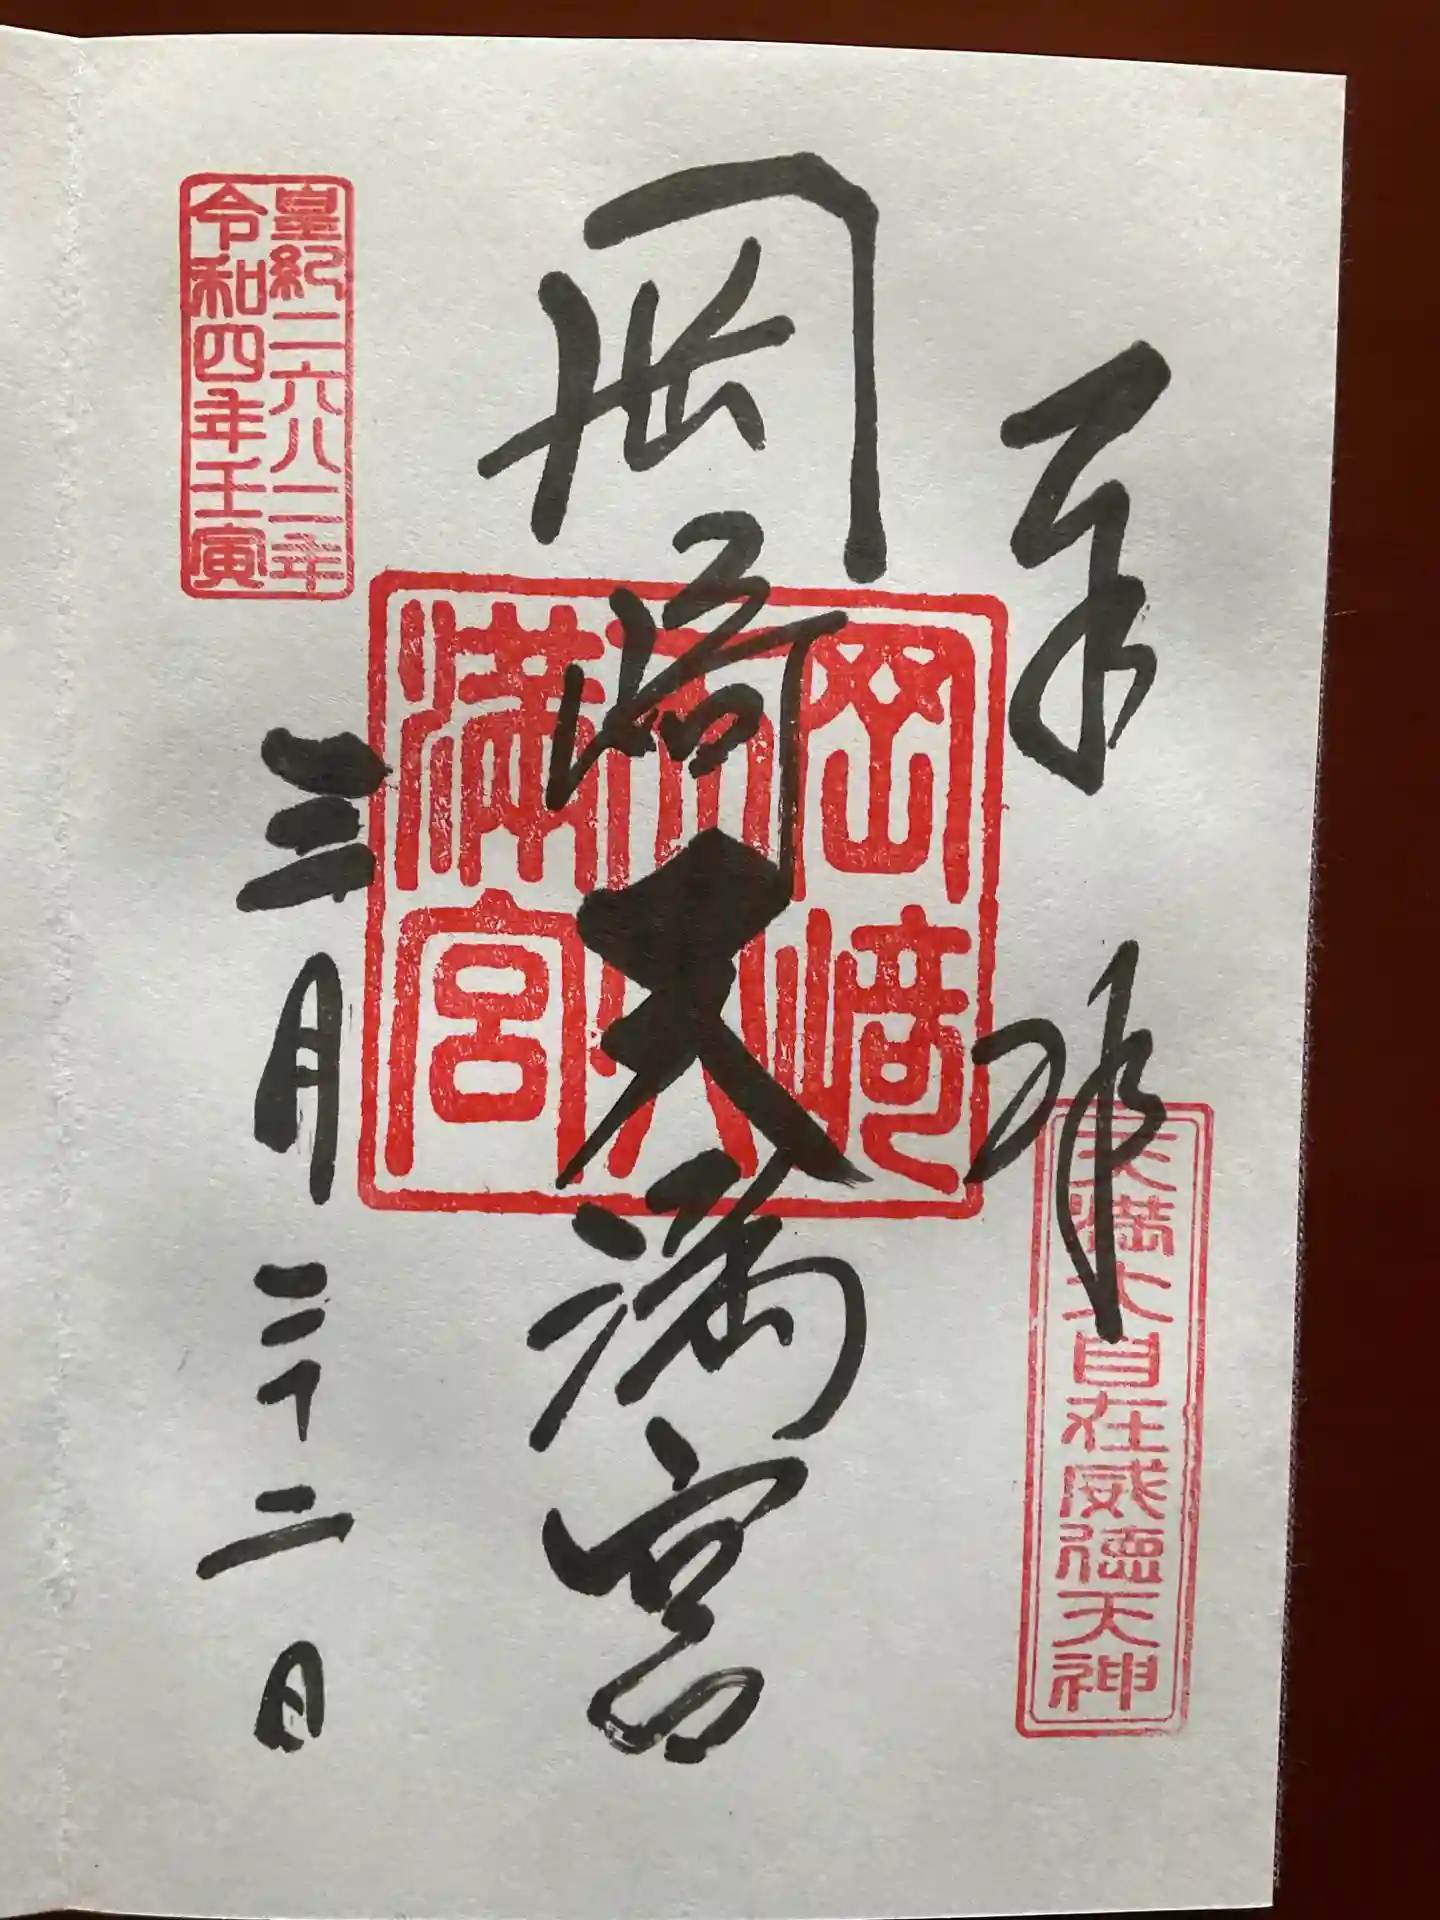 奉拝
天満大自在威徳天神
岡崎天満宮
岡﨑天満宮
皇紀二六八二年
令和四年壬寅
三月二十二日